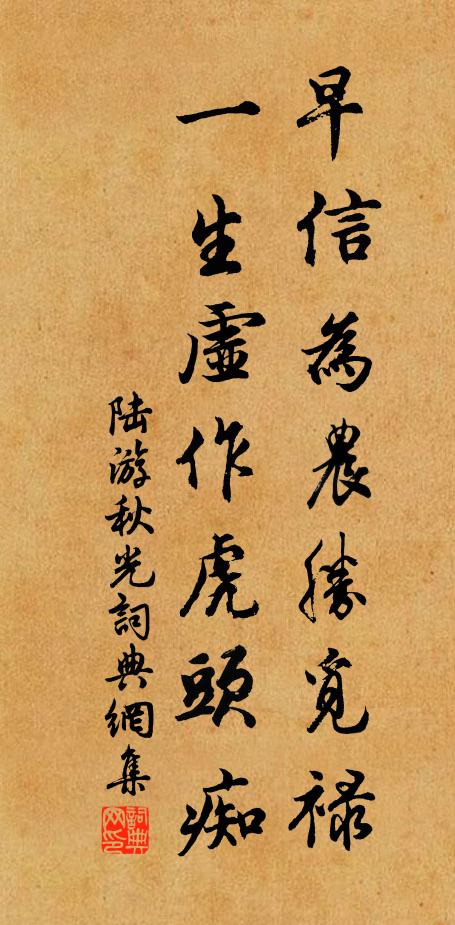 早信為農勝覓祿
一生虛作虎頭痴
陆游秋光詞典網集
詞典网印